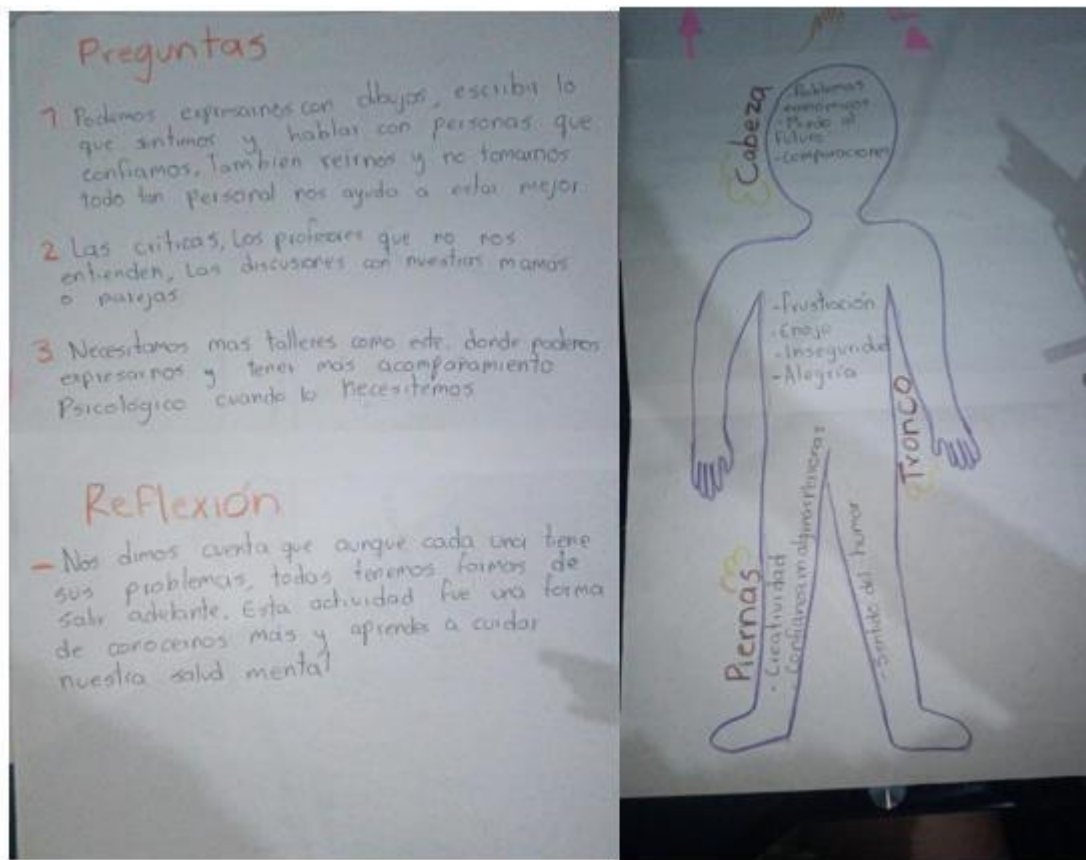 Preguntas
1 Podemos expresarnos con dibujos, escribir lo
que sintimos y hablar con personas que
confiamos. Tambien reirnos y no tomarnos
todo tan personal nos ayuda a estar mejor
2 Las críticas, Los profesores que no nos
entienden, Las discusiones con nuestras mamas
o parejas
3 Necesitamos mas talleres como este, donde podemos
expresarnos y tener mas acompañamiento
Psicologico cuando lo necesitemos
Reflexión
- Nos dimos cuenta que aunque cada una tiene
sus problemas, todas tenemos formas de
salir adelante. Esta actividad fue una forma
de conocernos más y aprender a cuidar
nuestra salud mental
Cabeza
- Problemas
economicos
- Miedo al
futuro
- comparaciones
- Frustración
- Enojo
- Inseguridad
- Alegría
Tronco
Piernas
- Creatividad
- Confianos in algunas Personas
- Sentido del humor